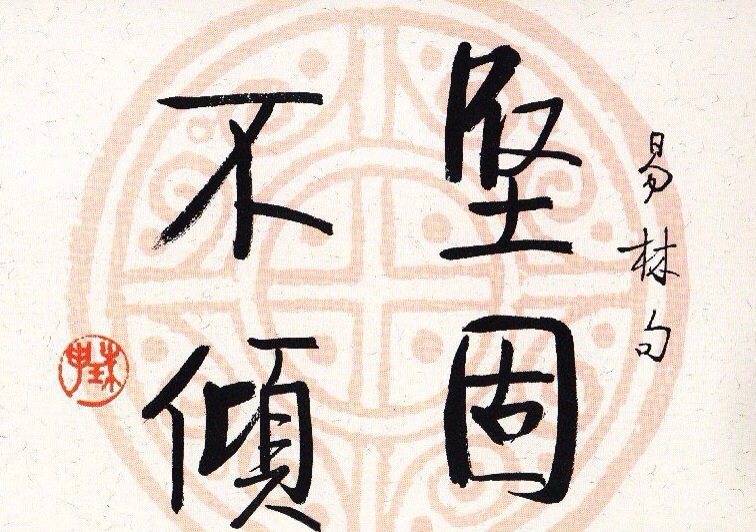 易林句
堅固
不傾